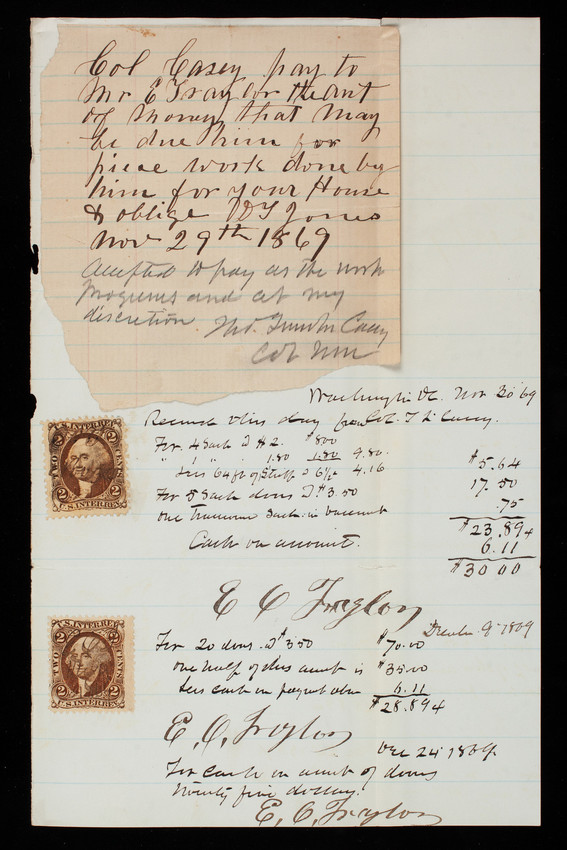 Col Casey pay to
Mr E Traylor the amt
of money that may
be due him for
piece work done by
him for your House
& oblige W J Jones
Nov 29th 1869
Accepted to pay as the work
progresses and at my
discretion. Thos. Lincoln Casey
Col
Washington DC. Nov 30 '69
Received this day from Col. T L Casey.
For 4 Sash @ $2. $8.00
" " " 1.80 1.80 9.80
Less 64 ft of Stuff @ 6½ 4.16 $5.64
For 5 Sash doors @ $3.50 17.50
one Transom Sash in basement .75
$23.89
Cash on account. 6.11
$30 00
E C Traylor
U.S. INTER. REV.
TWO CENTS
2 2
U.S. INTER. REV.
December 9th 1869
For 20 doors @ $3.50 $70.00
One half of this amt is $35.00
Less cash on payment above 6.11
$28.89
E. C. Traylor
U.S. INTER. REV.
TWO CENTS
2 2
U.S. INTER. REV.
Dec 24th 1869.
For cash on amt of doors
twenty five dollars.
E. C. Traylor